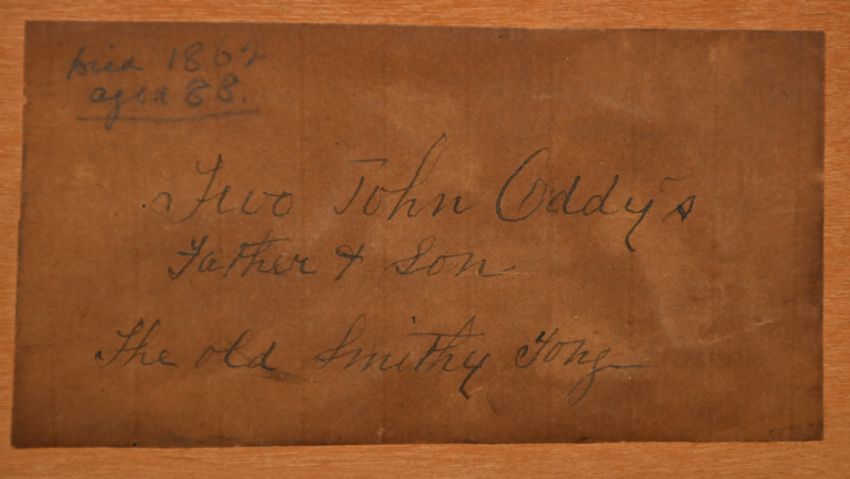 Died 1862
aged 88.
Two John Oddy's
Father & Son
The old Smithy Tong